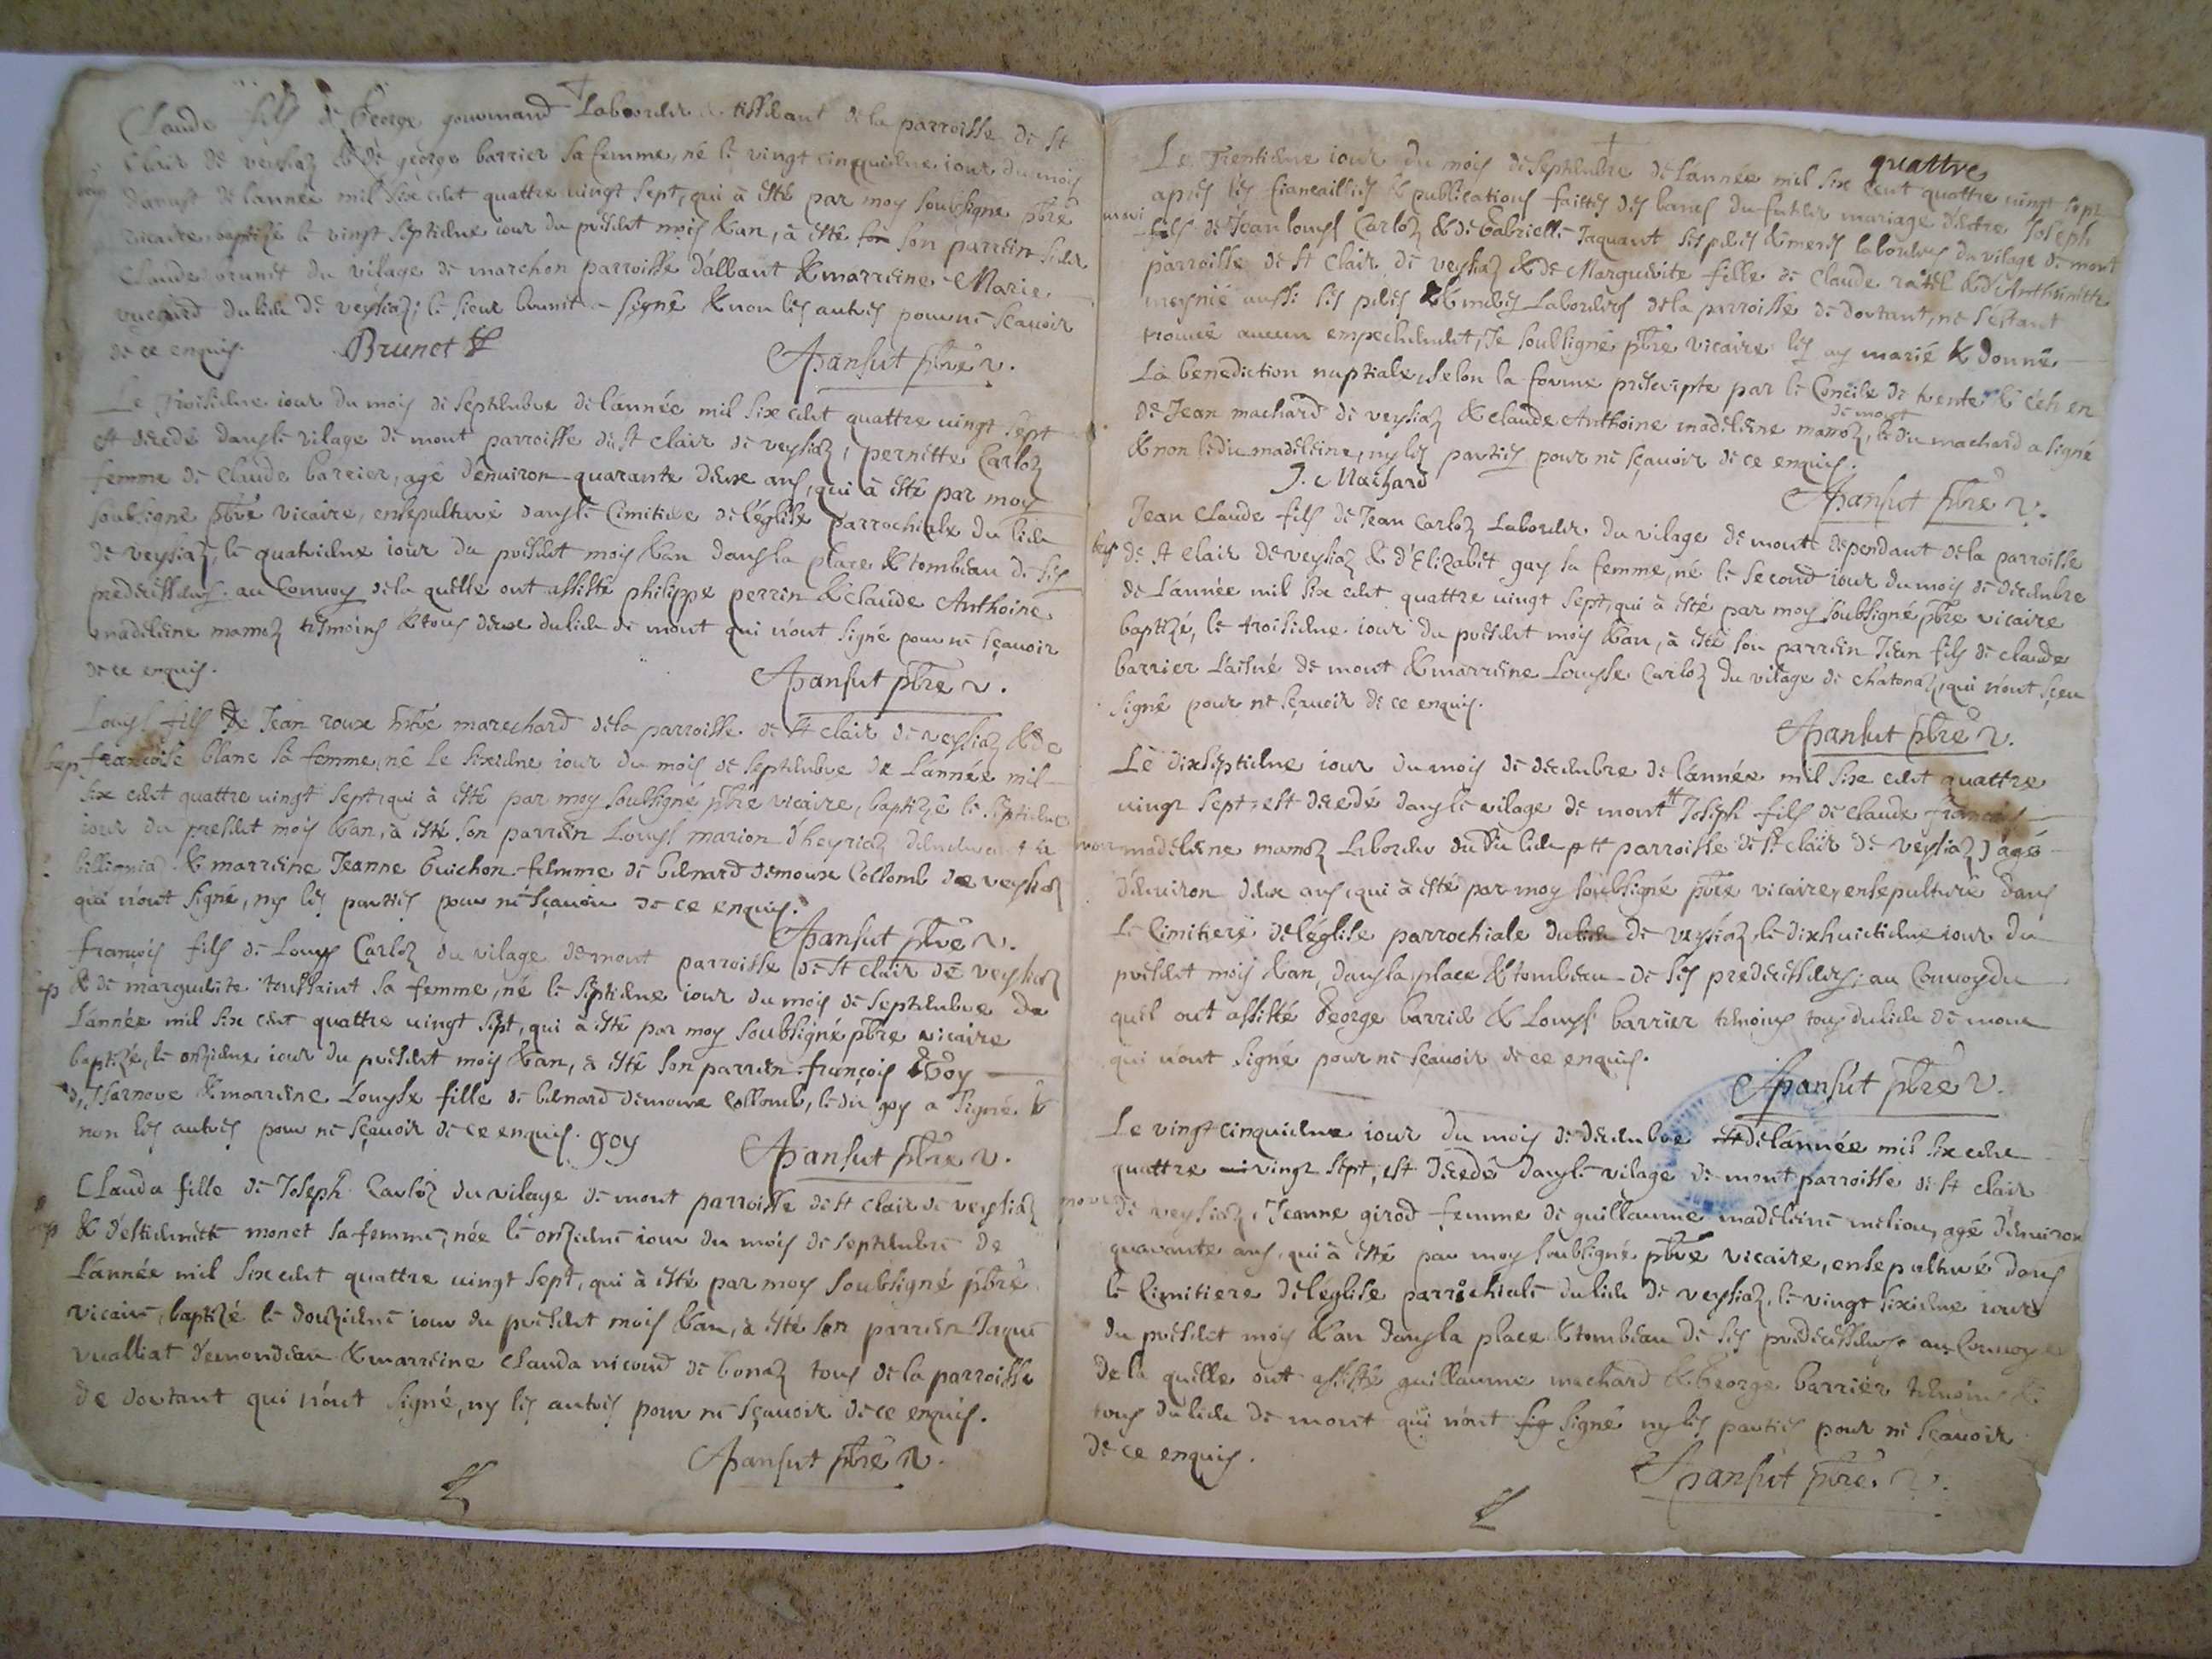 Claude fils de George gourmand Laborder & tissdant de la parroisse de St
Clair de veysiaz & de george barrier sa femme, né le vingt cinquidme iour du mois
daoust de lannée mil six cent quattre vingt sept, qui à esté par moy soubsigné pbre
vicaire baptisé le vingt septidme iour du present mois & an, à esté son parrein sieur
Claude brunet du vilage de marchon parroisse d'albant & marreine Marie
du lieu de veysiaz; le sieur brunet a signé & non les autres pour ne scavoir
de ce enquis. Brunet
Pansut pbre v.
Le troisidme iour du mois de septembre de lánnée mil six cent quattre vingt sept
est decedé dans le vilage de mont parroisse de St clair de veysiaz, pernette Carloz
femme de Claude barrier, agé denuiron quarante deux ans, qui à esté par moy
soubsigné pbre vicaire, ensepulturé dans le Cimitiere de léglise parrochiale du lieu
de veysiaz, le quatridme iour du present mois & an dans la place & tombeau de ses
predecesseurs. au Convoy de la quelle ont assisté philippe perrin & Claude Anthoine
madeleine mamoz tesmoins & tous deux du lieu de mont qui n'ont signé pour ne sçavoir
de ce enquis.
Pansut pbre v.
Louys fils de Jean roux mtre marechard de la parroisse de St clair de veysiaz & de
sep francoise blanc sa femme, né le sixidme iour du mois de septembre de lánnée mil
six cent quattre vingt sept, qui à esté par moy soubsigné pbre vicaire, baptizé le septidme
iour du present mois & an, à esté son parrein Louys marion d'heyriaz
& marreine Jeanne Guichon femme de bernard demoux Collomb de veysiaz
qui n'ont signé, ny les parties pour ne sçavoir de ce enquis.
Pansut pbre v.
françois fils de Louys Carloz du vilage de mont parroisse de St clair de veysiaz
sep & de marguerite toussaint sa femme, né le septidme iour du mois de septembre de
Lánnée mil six cent quattre vingt sept, qui à esté par moy soubsigné pbre vicaire
baptizé, le onzidme iour du present mois & an, à esté son parrein françois Goy
d'Isarnore & marreine Louyse fille de bernard demoux Collomb, ledit goy a signé &
non les autres pour ne sçavoir de ce enquis. goy
Pansut pbre v.
Clauda fille de Joseph Carloz du vilage de mont parroisse de St clair de veysiaz
sep & d'estiennette monet sa femme, née le onzidme iour du mois de septembre de
Lánnée mil six cent quattre vingt sept, qui à esté par moy soubsigné pbre
vicaire, baptizé le douzidme iour du present mois & an, à esté son parrein Jaque
vualliat d'emondeau & marreine Clauda nicoud de bonaz tous de la parroisse
de dortant qui n'ont signé, ny les autres pour ne sçavoir de ce enquis.
Pansut pbre v.
quattre
Le trentidme iour du mois de septembre de lánnée mil six cent quattre vingt sept
apres les fiancailles & publications faittes des bancs du futur mariage dentre Joseph
mari fils de Jean louys Carloz & de Gabrielle Jaquant ses peres & meres laboureurs du vilage de mont
parroisse de St Clair de veysiaz & de Marguerite fille de Claude ratel & d'Anthoinette
meynié aussi ses peres & meres Laboureurs de la parroisse de dortant, ne sestant
trouué aucun empechement, Je soubsigné pbre vicaire les ay marié & donné
La benediction nuptiale, selon la forme prescripte par le Concile de trente
de mont
de Jean machard de veysiaz & claude Anthoine madeleine mamoz, ledit machard a signé
& non ledit madeleine, ny les parties pour ne sçavoir de ce enquis.
J. Machard
Pansut pbre v.
Jean Claude fils de Jean Carloz Laborder du vilage de mont dependant de la parroisse
bap de St Clair de veysiaz & d'Elizabet gay sa femme, né le second iour du mois de decembre
de Lánnée mil six cent quattre vingt sept, qui à esté par moy soubsigné pbre vicaire
baptizé, le troisidme iour du present mois & an, à esté son parrein Jean fils de claude
barrier Laisné de mont & marreine Louyse Carloz du vilage de chatonaz, qui n'ont sceu
signé pour ne sçavoir de ce enquis.
Pansut pbre v.
Le dixseptidme iour du mois de decembre de lánnée mil six cent quattre
vingt sept, est decedé dans le vilage de mont Joseph fils de Claude francois
mor madeleine mamoz Laborder du dit lieu parroisse de St clair de veysiaz, agé
d'enuiron deux ans, qui à esté par moy soubsigné pbre vicaire, ensepulturé dans
Le Cimitiere de léglise parrochiale du lieu de veysiaz, le dixhuictidme iour du
present mois & an, dans la place & tombeau de ses predecesseurs; au Convoy du
quel ont assisté George barrier & Louys barrier temoins tous du lieu de mont
qui n'ont signé pour ne sçavoir de ce enquis.
Pansut pbre v.
Le vingt cinquidme iour du mois de decembre de lánnée mil six cent
quattre vingt sept, est decedé dans le vilage de mont parroisse de St clair
mor de veysiaz, Jeanne girod femme de guillaume madeleine melion, agé d'enuiron
quarante ans, qui à esté par moy soubsigné pbre vicaire, ensepulturé dans
le Cimitiere de léglise parrochiale du lieu de veysiaz, le vingt sixidme iour
du present mois & an dans la place & tombeau de ses predecesseurs au Convoy
de la quelle ont assisté guillaume machard & George barrier temoins &
tous du lieu de mont qui n'ont sig signé ny les parties pour ne sçavoir
de ce enquis.
Pansut pbre. v.